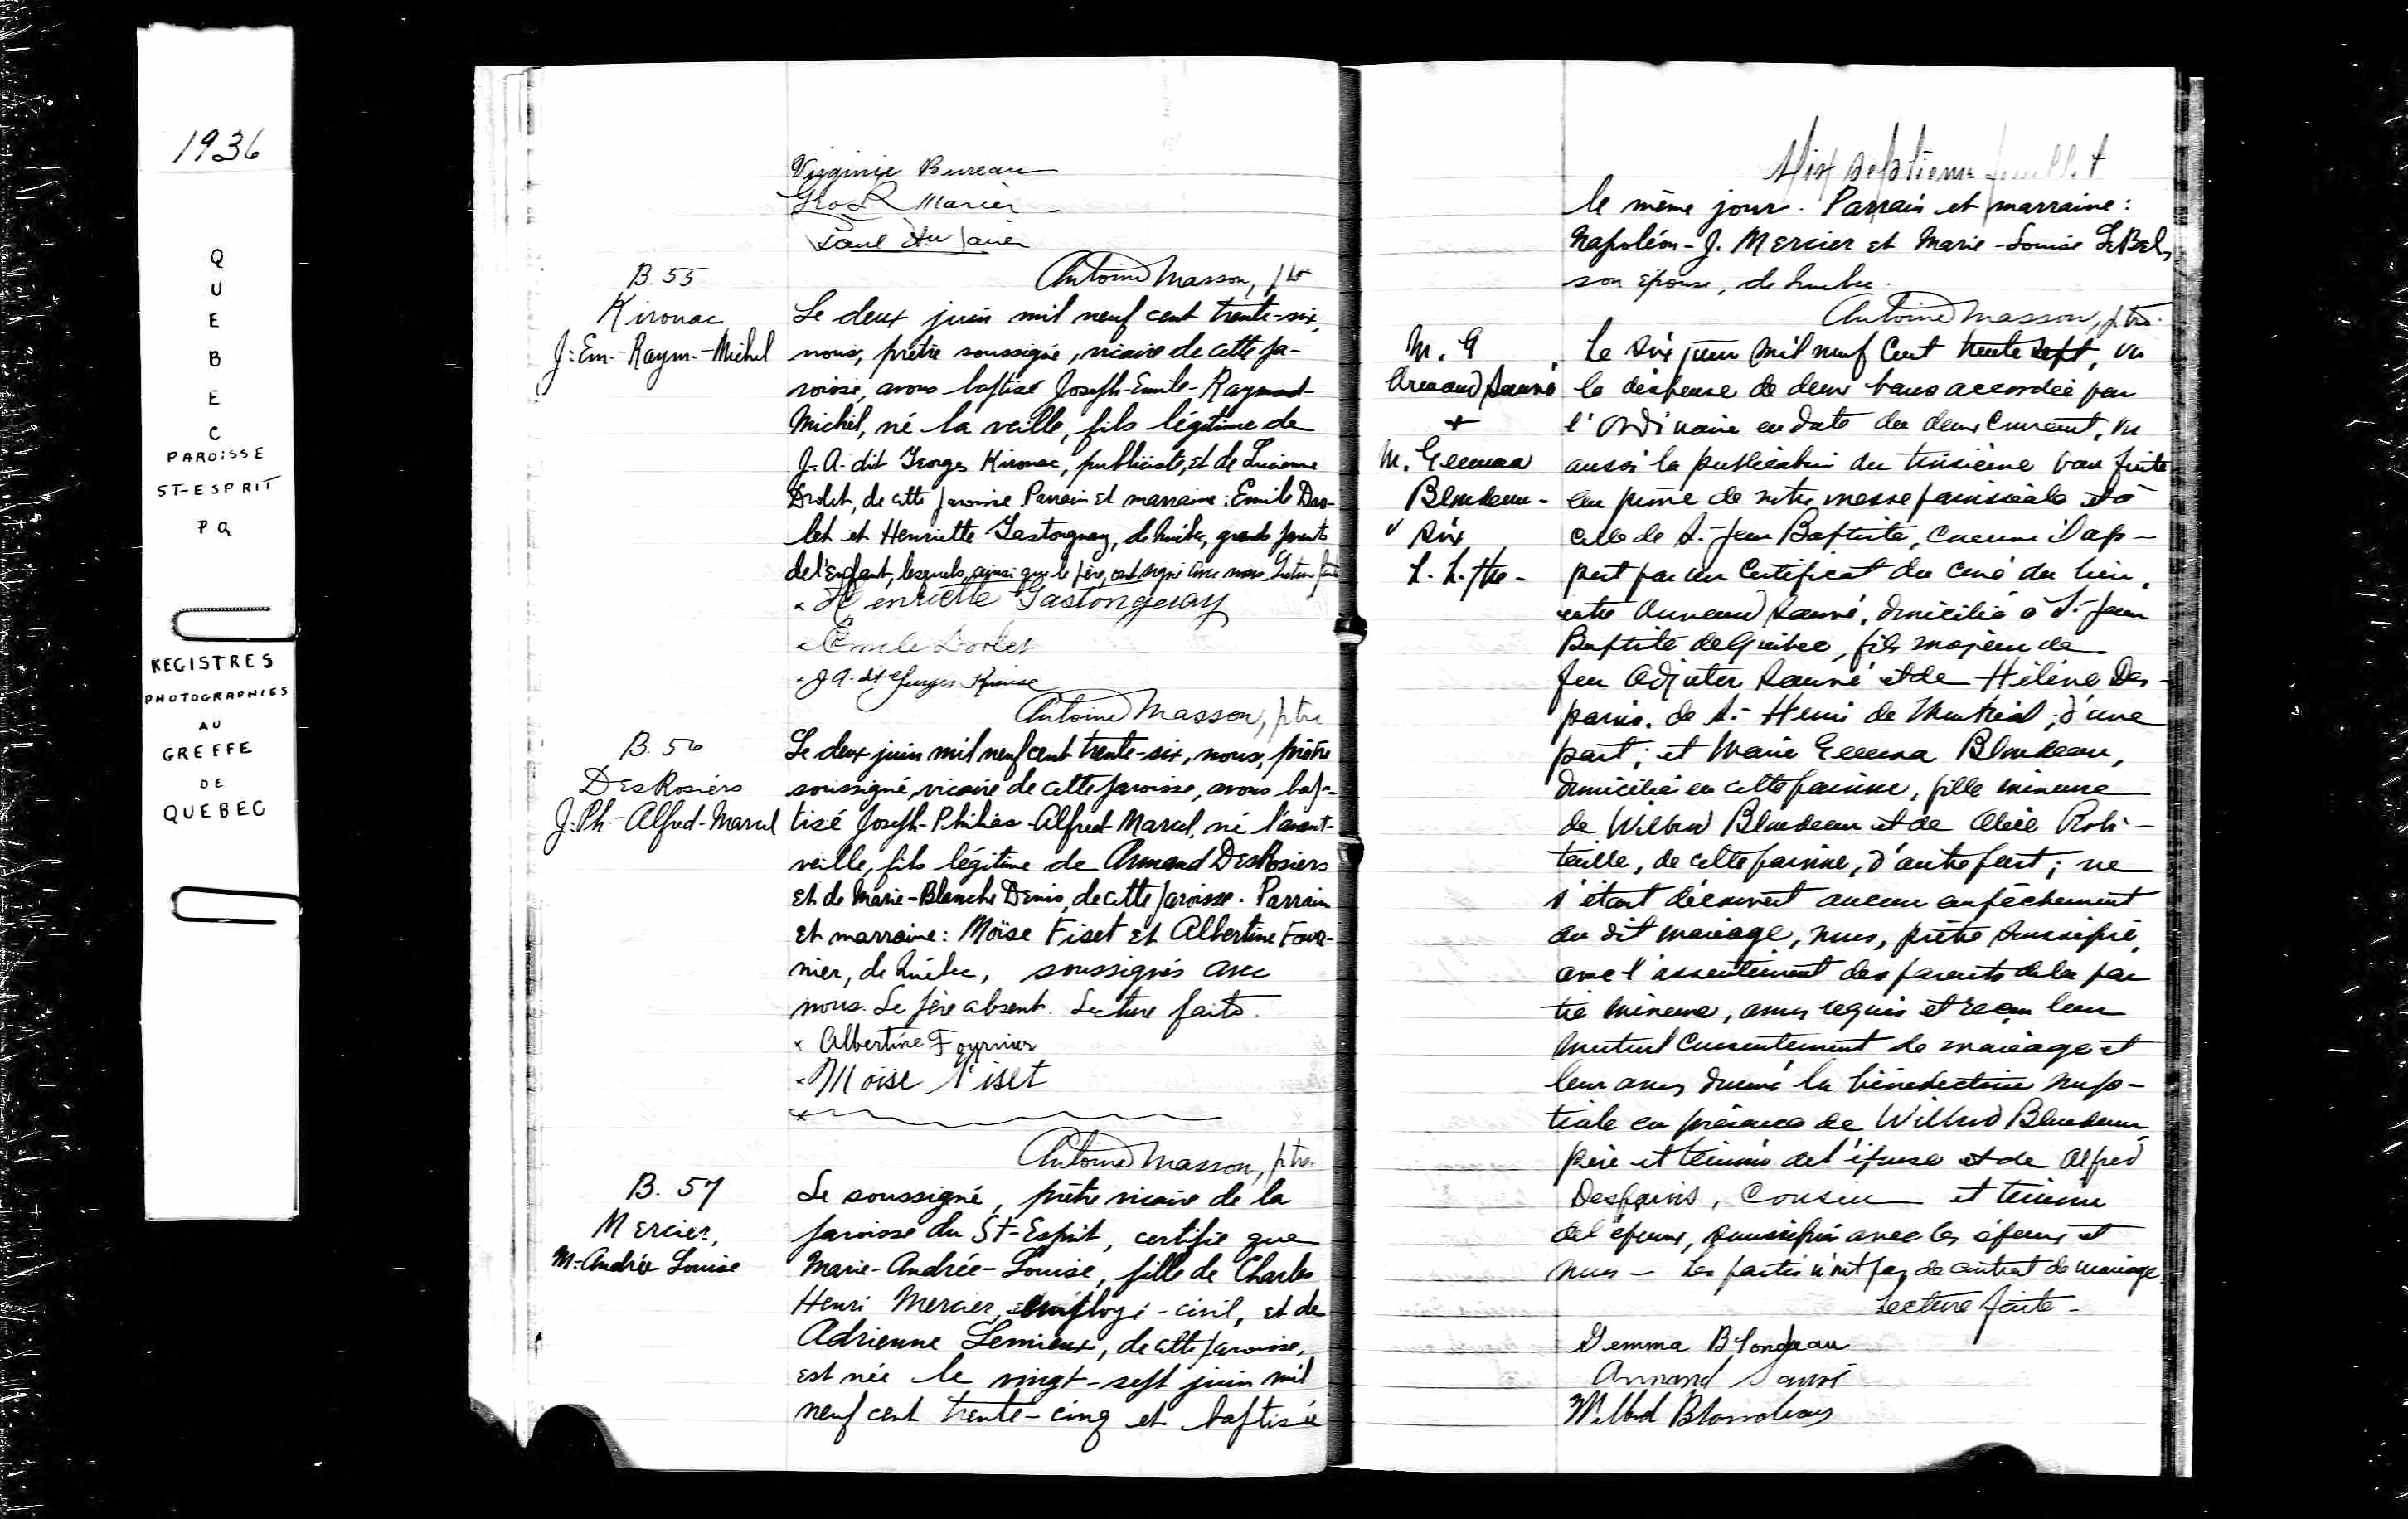 1936
Q
U
E
B
E
C
PAROISSE
ST-ESPRIT
PQ
REGISTRES
PHOTOGRAPHIES
AU
GREFFE
DE
QUEBEC
Virginie Bureau
Marier
Antoine Masson, ptre
B. 55
Kirouac
J.-Em.-Raym.-Michel
Le deux juin mil neuf cent trente-six,
nous, prêtre soussigné, vicaire de cette pa-
roisse, avons baptisé Joseph-Emile-Raymond-
Michel, né la veille, fils légitime de
J.-A. dit Georges Kirouac, publiciste, et de Lucienne
Drolet, de cette paroisse. Parrain et marraine: Emile Dro-
let et Henriette Gastonguay, de Québec, grands parents
de l'enfant, lesquels, ainsi que le père, ont signé avec nous. Lecture faite
x Henriette Gastonguay
x Emile Drolet
x J A. dit Georges
Antoine Masson, ptre
B. 56
DesRosiers
J.-Ph.-Alfred-Marcel
Le deux juin mil neuf cent trente-six, nous, prêtre
soussigné, vicaire de cette paroisse, avons bap-
tisé Joseph-Philias-Alfred-Marcel, né l'avant-
veille, fils légitime de Armand DesRosiers
et de Marie-Blanche Denis, de cette paroisse. Parrain
et marraine: Moïse Fiset et Albertine Four-
nier, de Québec, soussignés avec
nous. Le père absent. Lecture faite.
x Albertine Fournier
x Moise Fiset
x
Antoine Masson, ptre.
B. 57
Mercier,
M-Andrée Louise
Le soussigné, prêtre vicaire de la
paroisse du St-Esprit, certifie que
Marie-Andrée-Louise, fille de Charles
Henri Mercier, employé-civil, et de
Adrienne Lemieux, de cette paroisse,
est née le vingt-sept juin mil
neuf cent trente-cinq et baptisée
Dix septième feuillet
le même jour. Parrain et marraine:
Napoléon-J. Mercier et Marie-Louise LeBel,
son épouse, de Québec.
Antoine Masson, ptre.
M. 9
Armand Sauvé
+
M. Gemma
Blondeau-
Six
Le six juin mil neuf cent trente sept, vu
la dispense de deux bans accordée par
l'Ordinaire en date du deux courant, vu
aussi la publication du troisième ban faite
au prône de notre messe paroissiale et à
celle de St-Jean Baptiste, comme il ap-
pert par un certificat du curé du lieu,
entre Armand Sauvé, domicilié à St-Jean
Baptiste de Québec, fils majeur de
feu Adjutor Sauvé et de Hélène Des-
parois, de St-Henri de Montréal, d'une
part; et Marie Gemma Blondeau,
domiciliée en cette paroisse, fille mineure
de Wilbrod Blondeau et de Alice Robi-
taille, de cette paroisse, d'autre part; ne
s'étant découvert aucun empêchement
au dit mariage, nous, prêtre soussigné,
avec l'assentiment des parents de la par
tie mineure, avons requis et reçu leur
mutuel consentement de mariage et
leur avons donné la bénédiction nup-
tiale en présence de Wilbrod Blondeau
père et témoin de l'épouse et de Alfred
Desparois, cousin et témoin
de l'époux, soussignés avec les époux et
nous - Les parties n'ont pas de contrat de mariage
Lecture faite -
Gemma Blondeau
Armand Sauvé
Wilbrod Blondeau